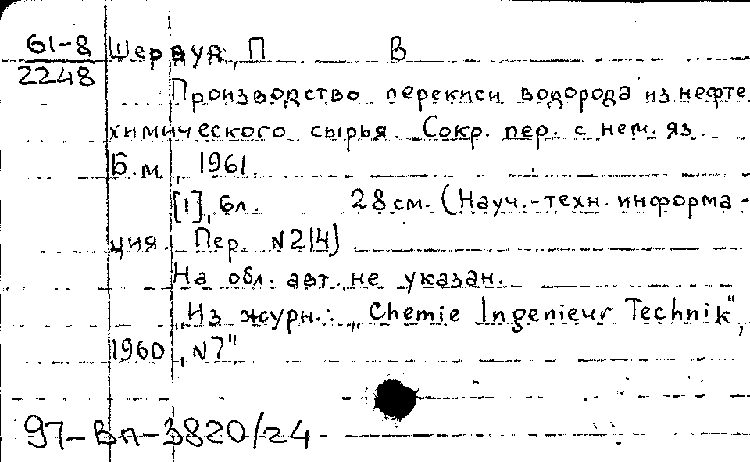 61-8 Шервуд, П В
2248
Производство перекиси водорода из нефте
химического сырья. Сокр. пер. с нем. яз.
Б.м., 1961.
[1], 6л. 28 см. (Науч.-техн. информа-
ция. Пер. N214)
На обл. авт. не указан.
"Из журн.: "Chemie Ingenieur Technik",
1960, N7"
97-Вп-3820/24